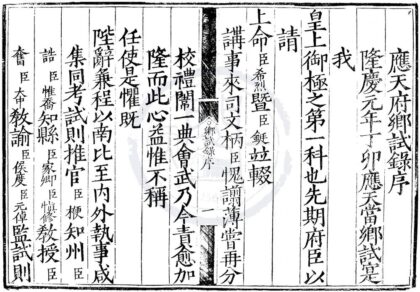 應天府鄉試錄序
隆慶元年丁卯應天當鄉試寔
我
皇上御極之第一科也先期府臣以
請
上命臣希烈暨臣鋌竝輟
講事來司文柄臣愧謭薄嘗再分
鄉試錄序
一
校禮闈一典會武乃今責愈加
隆而此心益惟不稱
任使是懼既
陛辭兼程以南比至內外執事咸
集同考試則推官臣梗知州臣
誥臣惟喬知縣臣家卿臣惟修教授臣
奮臣大中教諭臣侯度臣元倬監試則